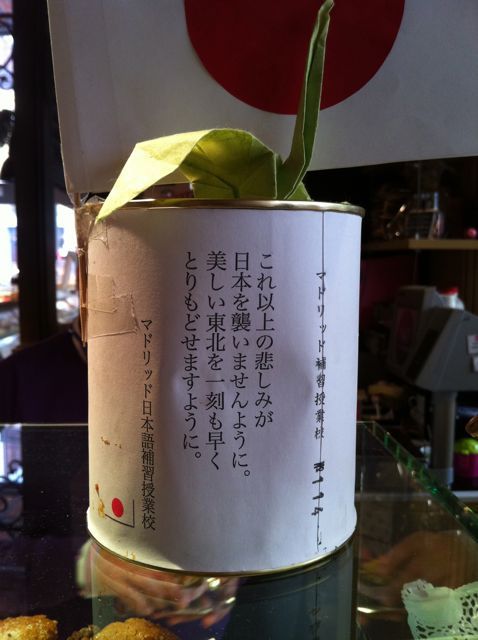 マドリッド補習授業校
これ以上の悲しみが
日本を襲いませんように。
美しい東北を一刻も早く
とりもどせますように。
マドリッド日本語補習授業校